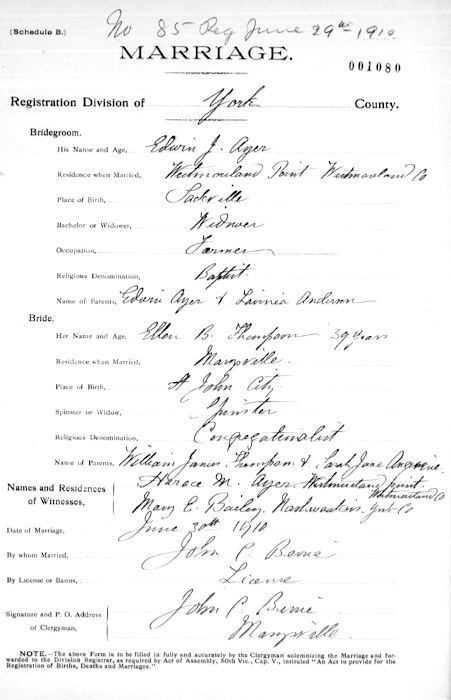 (Schedule B.)
No 85 Reg June 29th 1910
MARRIAGE.
001080
Registration Division of York County.
Bridegroom.
His Name and Age, Edwin J. Ayer
Residence when Married, Westmorland Point Westmorland Co
Place of Birth, Sackville
Bachelor or Widower, Widower
Occupation, Farmer
Religious Denomination, Baptist
Name of Parents, Edwin Ayer & Lavinia Anderson
Bride.
Her Name and Age, Ellen B. Thompson 39 years
Residence when Married, Marysville.
Place of Birth, St John City
Spinster or Widow, Spinster
Religious Denomination, Congregationalist
Name of Parents, William James Thompson & Sarah Jane
Names and Residences of Witnesses,
Horace M. Ayer. Westmorland Point Westmorland Co
Mary E. Bailey. Nashwaaksis. York Co
Date of Marriage, June 30th 1910
By whom Married, John C. Berrie
By License or Banns, License
Signature and P. O. Address of Clergyman,
John C Berrie
Marysville.
NOTE.—The above Form is to be filled in fully and accurately by the Clergyman solemnizing the Marriage and for-
warded to the Division Registrar, as required by Act of Assembly, 50th Vic., Cap. V., intituled "An Act to provide for the
Registration of Births, Deaths and Marriages."